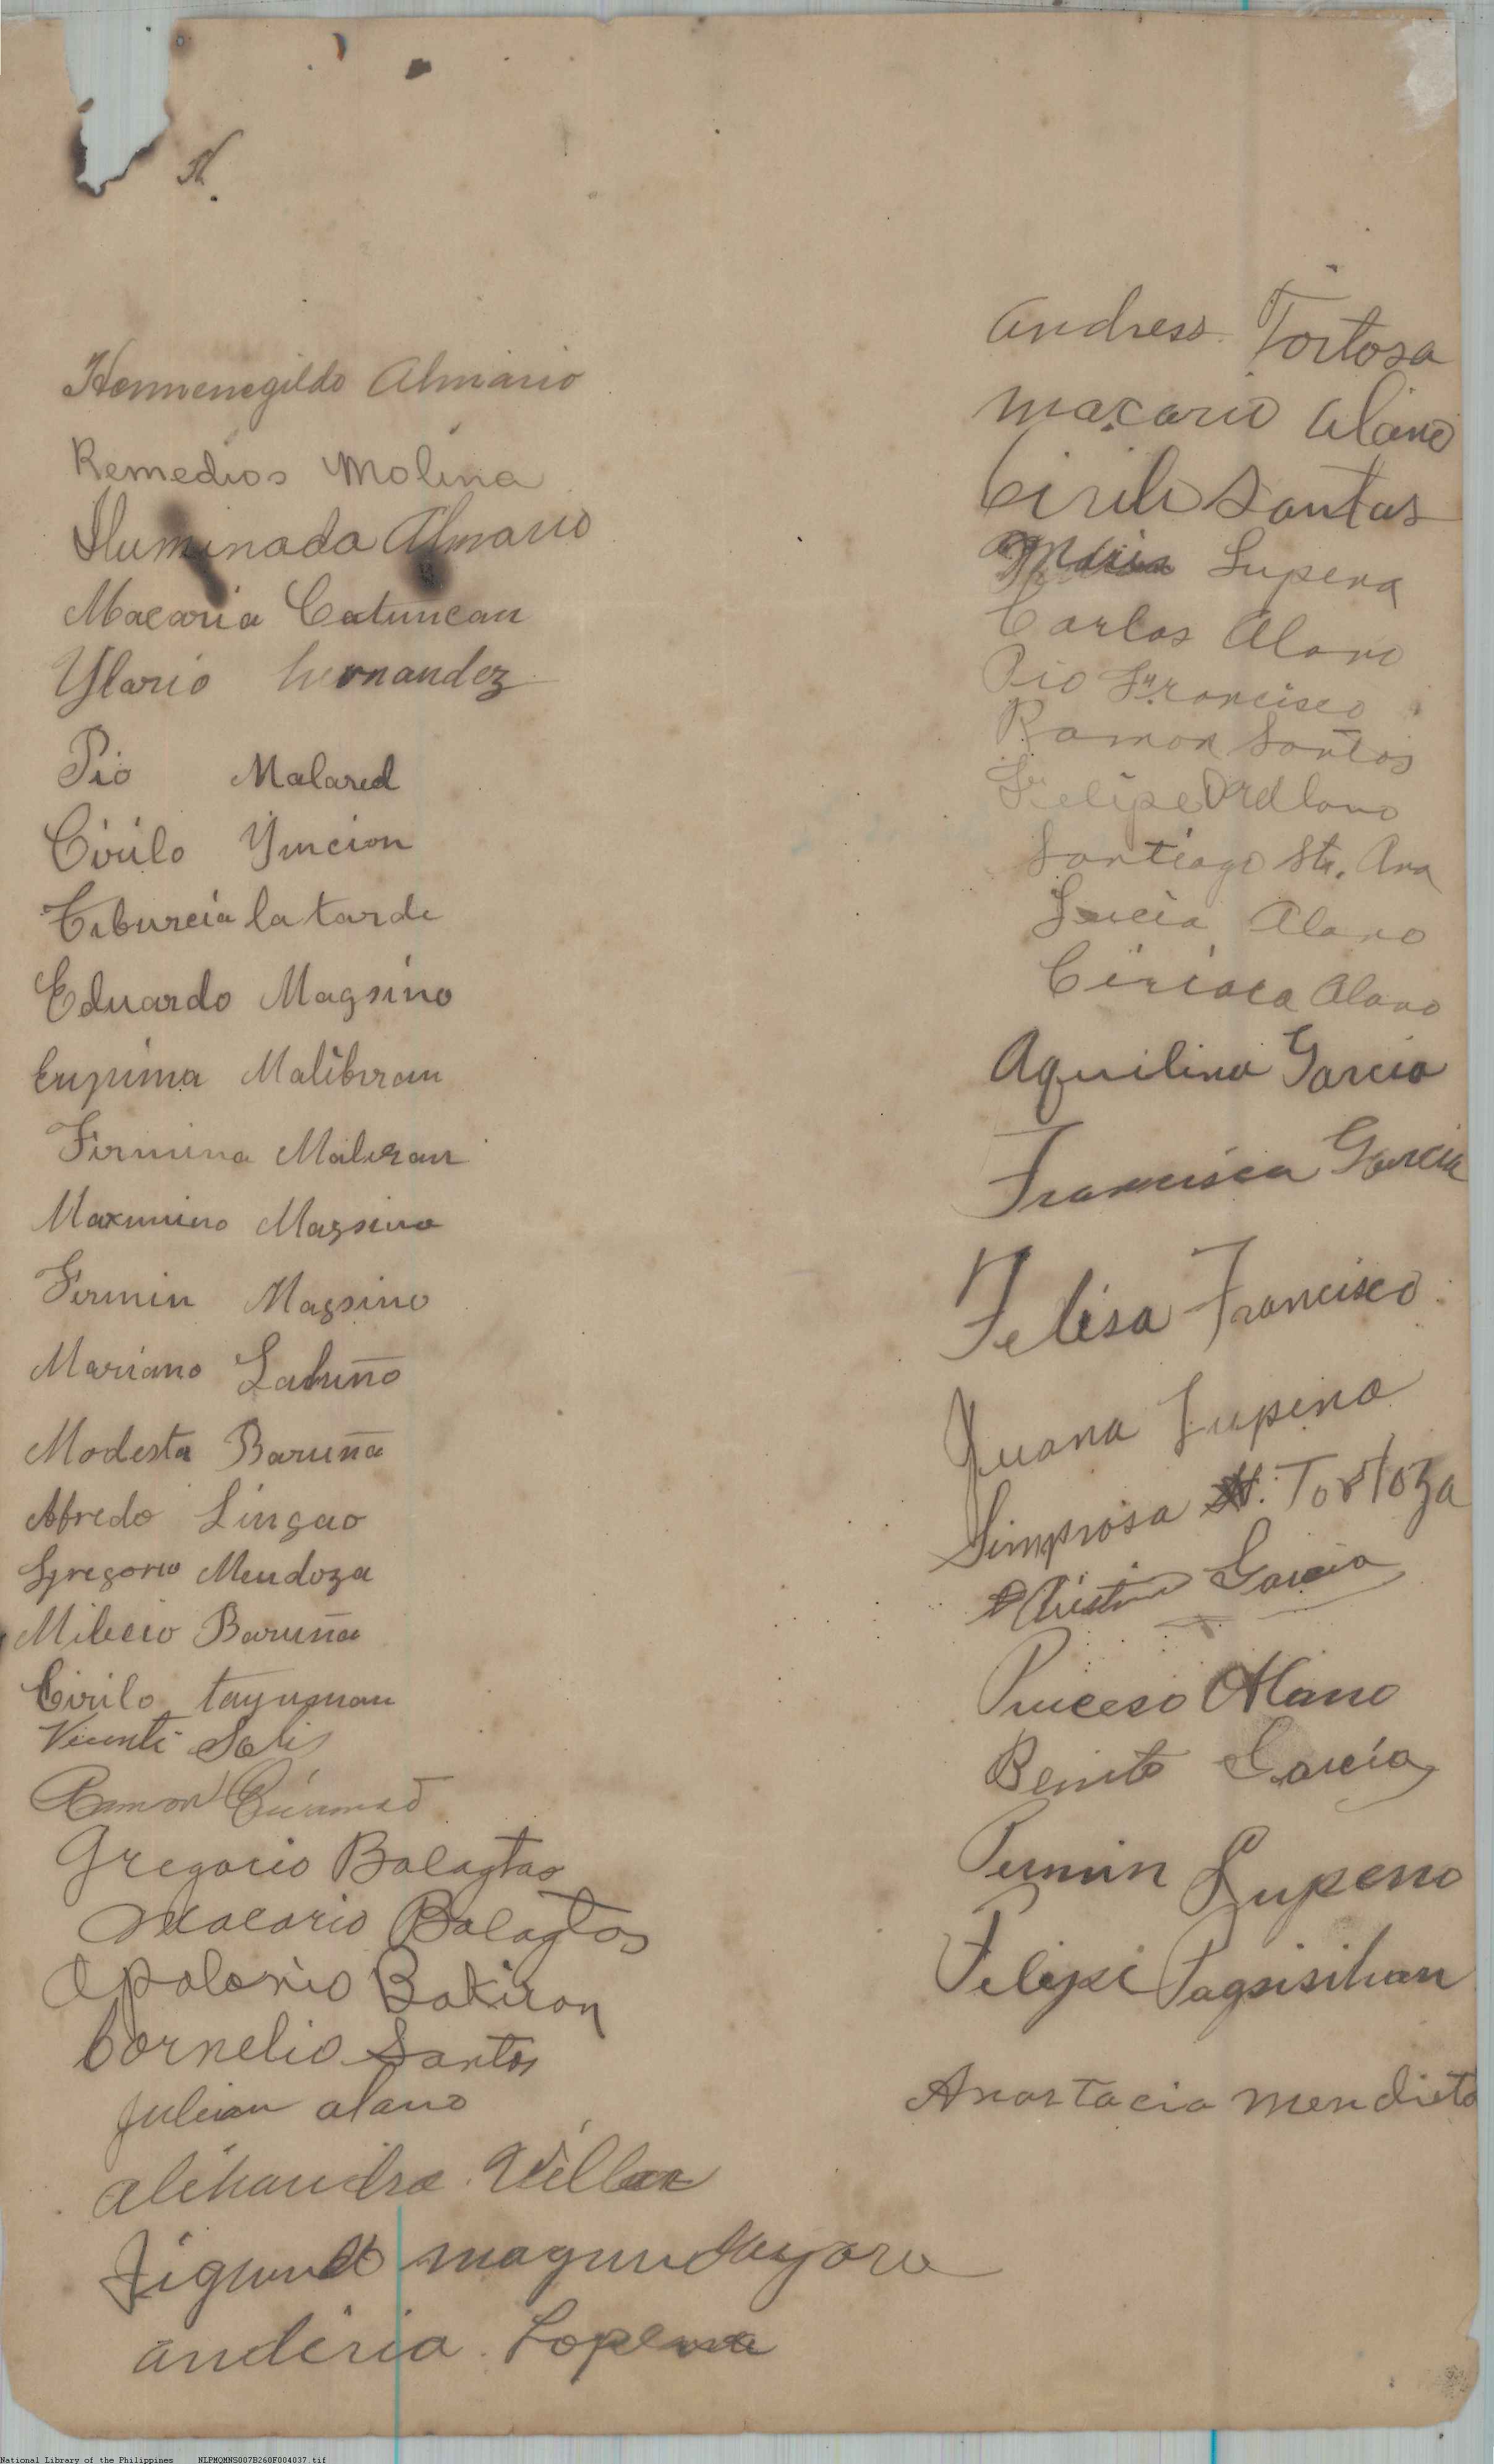 Hermenegildo Almario
Remedios Molina
Iluminada Almario
Macaria Catuncan
Ylario hernandez
Pio Malared
Cirilo Yncion
Tiburcia la tarde
Eduardo Magsino
Malibiran
Firmina Malibran
Maximino Magsino
Fermin Magsino
Mariano
Modesta Baruña
Alfredo Lingao
Gregorio Mendoza
Milecio Baruña
Cirilo
Vicente Solis
Ramon
Gregorio Balagtas
Macario Balagtas
Apolonio Bakiron
Cornelio Santos
Julian alano
alehandra Villar
magundayao
anderia Lopena
Andress Tortosa
macario alano
Cirilo Santos
Maria Lupena
Carlos Alano
Pio Francisco
Ramon Santos
Felipe
Santiago Sta. Ana
Lucia Alano
Ciriaca Alano
Aquilina Garcia
Francisca Garcia
Felisa Francisco
Juana Lupena
Simprosa Tortoza
Garcia
Alano
Benito Garcia
Permin Lupeno
Felipe Pagsisihan
Anastacia mendieta
National Library of the Philippines NLPMQMNS007B260F004037.tif